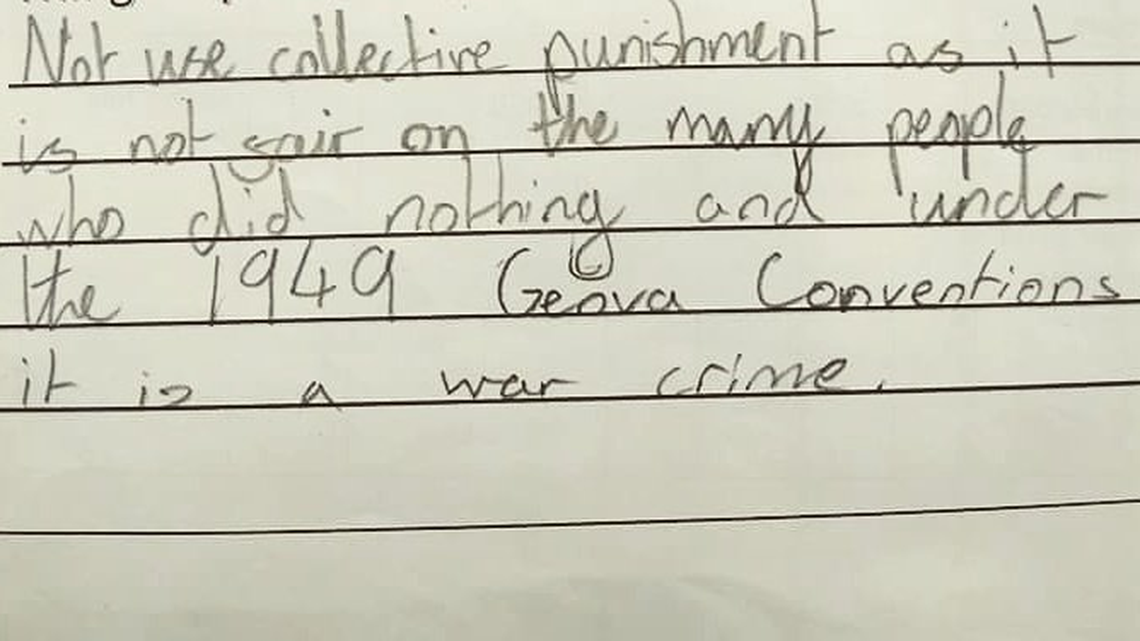 Not use collective punishment as it
is not fair on the many people
who did nothing and under
the 1949 Genova Conventions
it is a war crime.